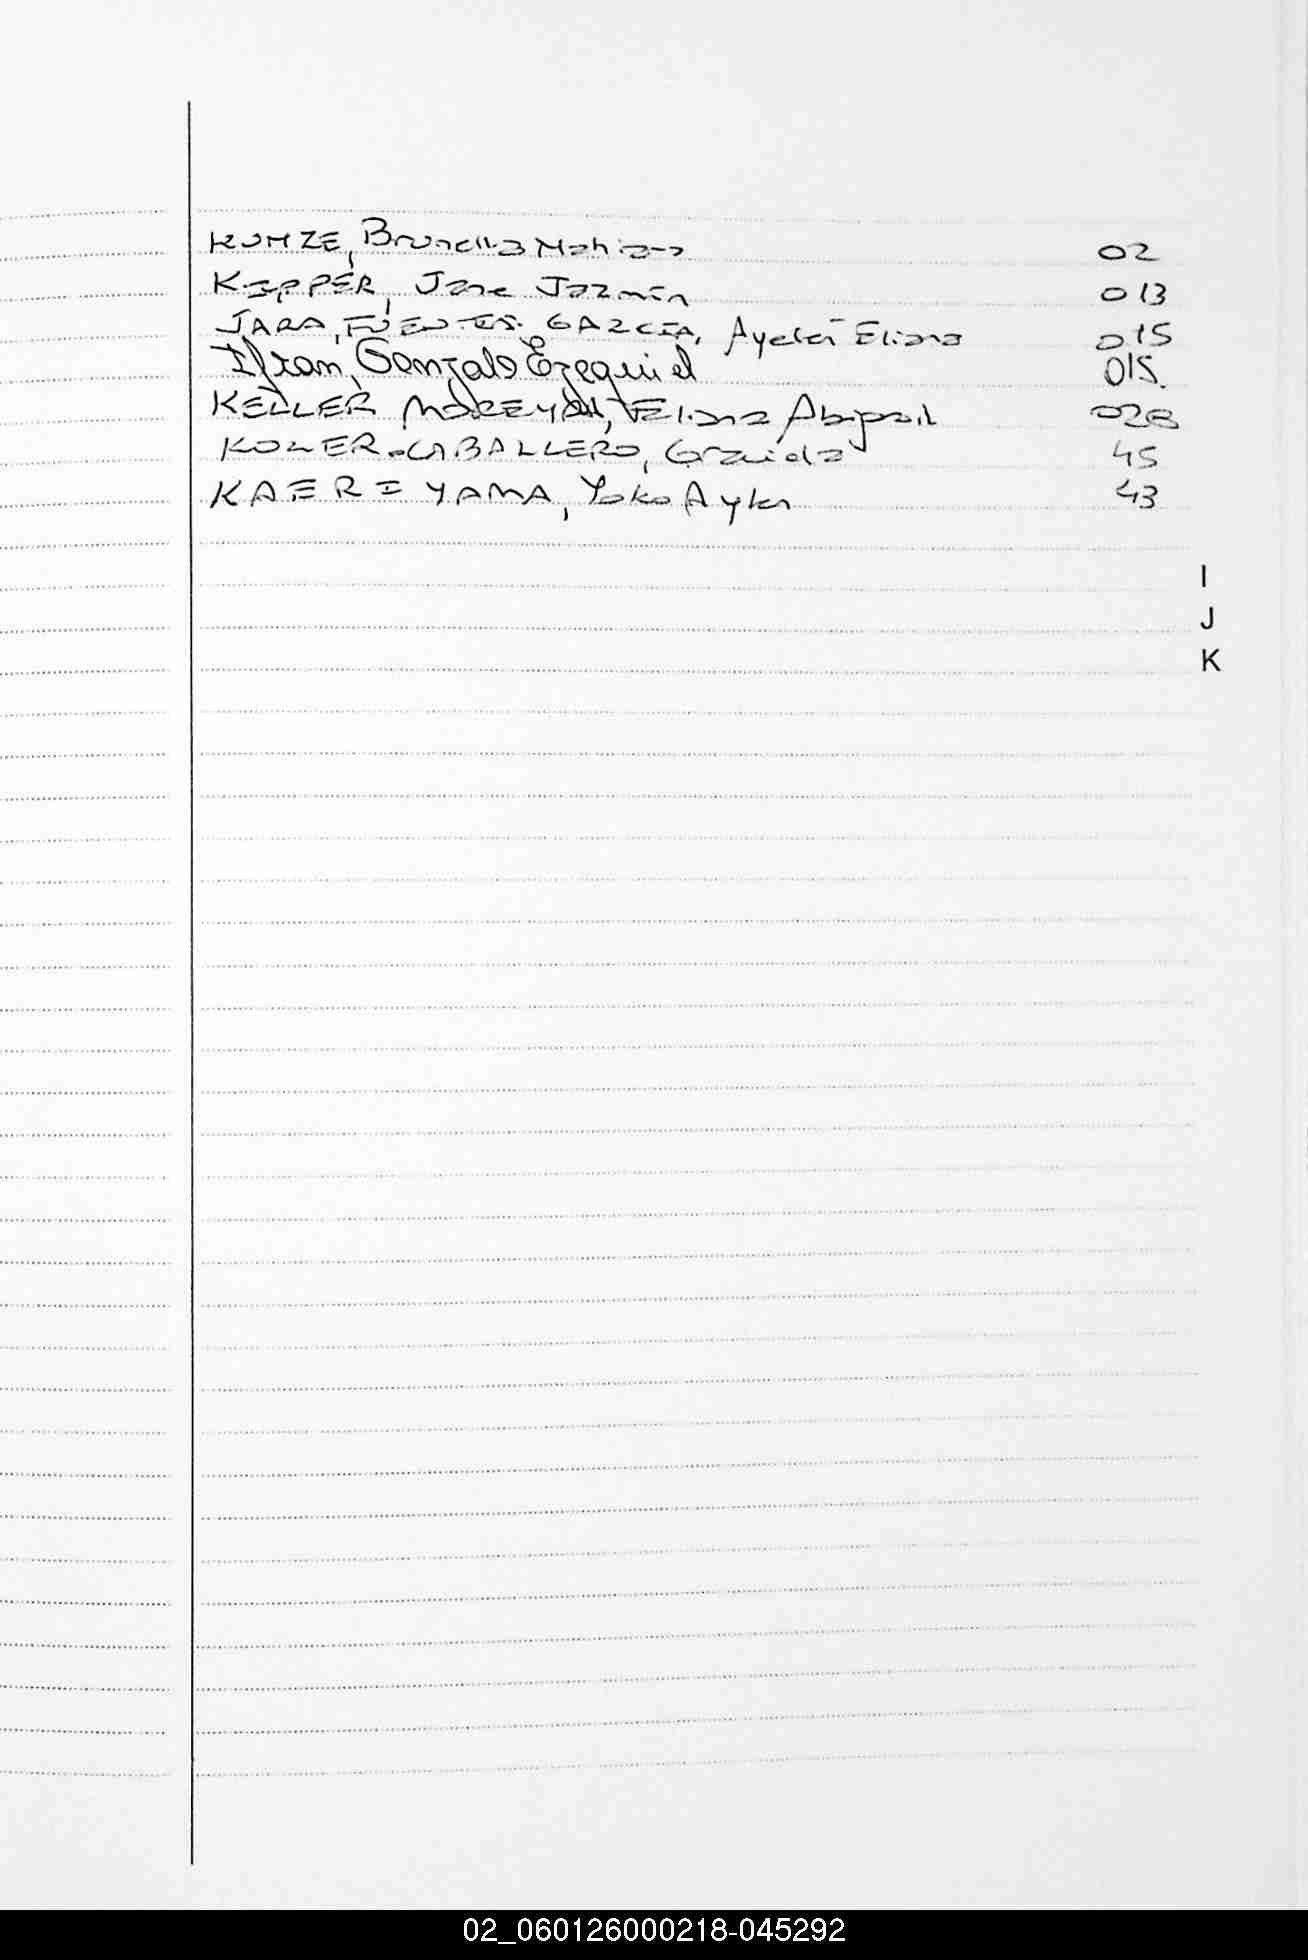 KUHZE, Brunella Mahiara 02
KIPPER, Jane Jazmín 013
JARA, FUENTES GARCIA, Ayelén Eliana 015
Ifran, Gonzalo Ezequiel 015.
KELLER MOREYRA, Eliana Abigail 028
KOLER CABALLERO, Graciela 45
KAERIYAMA, Yoko Aylen 43
I
J
K
02_060126000218-045292